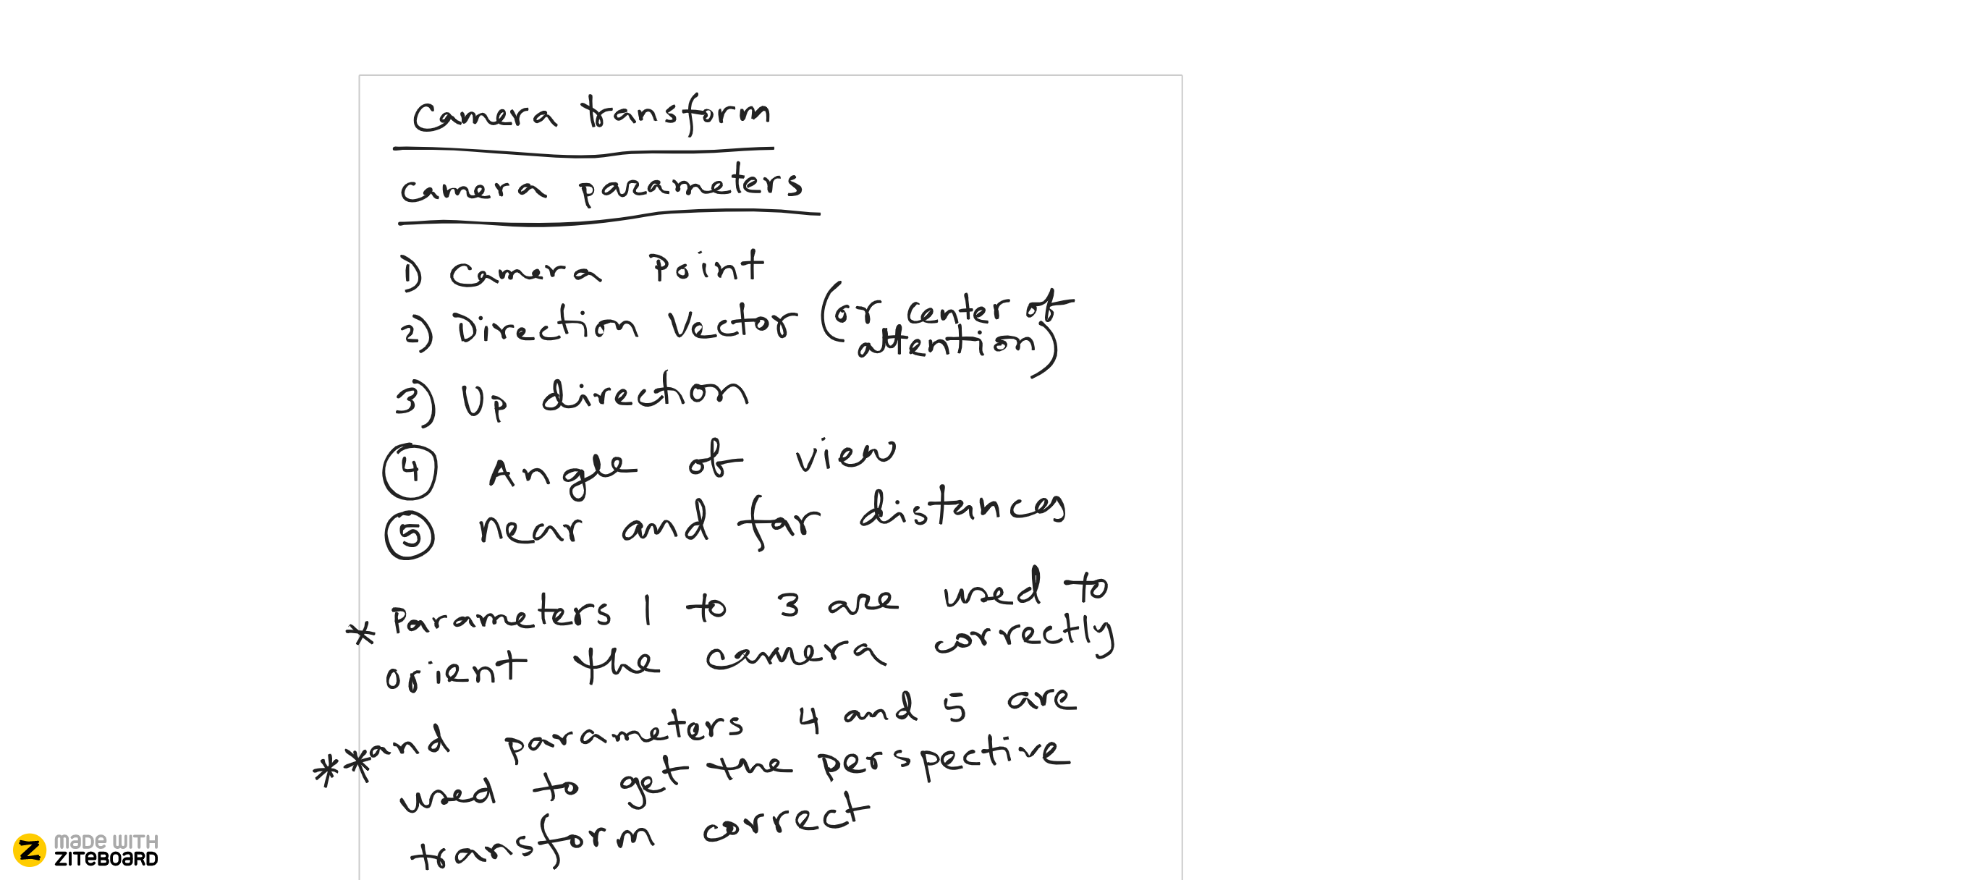 Camera transform
camera parameters
1) Camera Point
2) Direction Vector (or center of
attention)
3) Up direction
4 Angle of view
5 near and far distances
* Parameters 1 to 3 are used to
orient the camera correctly
** and parameters 4 and 5 are
used to get the perspective
transform correct
MADE WITH
ZITEBOARD